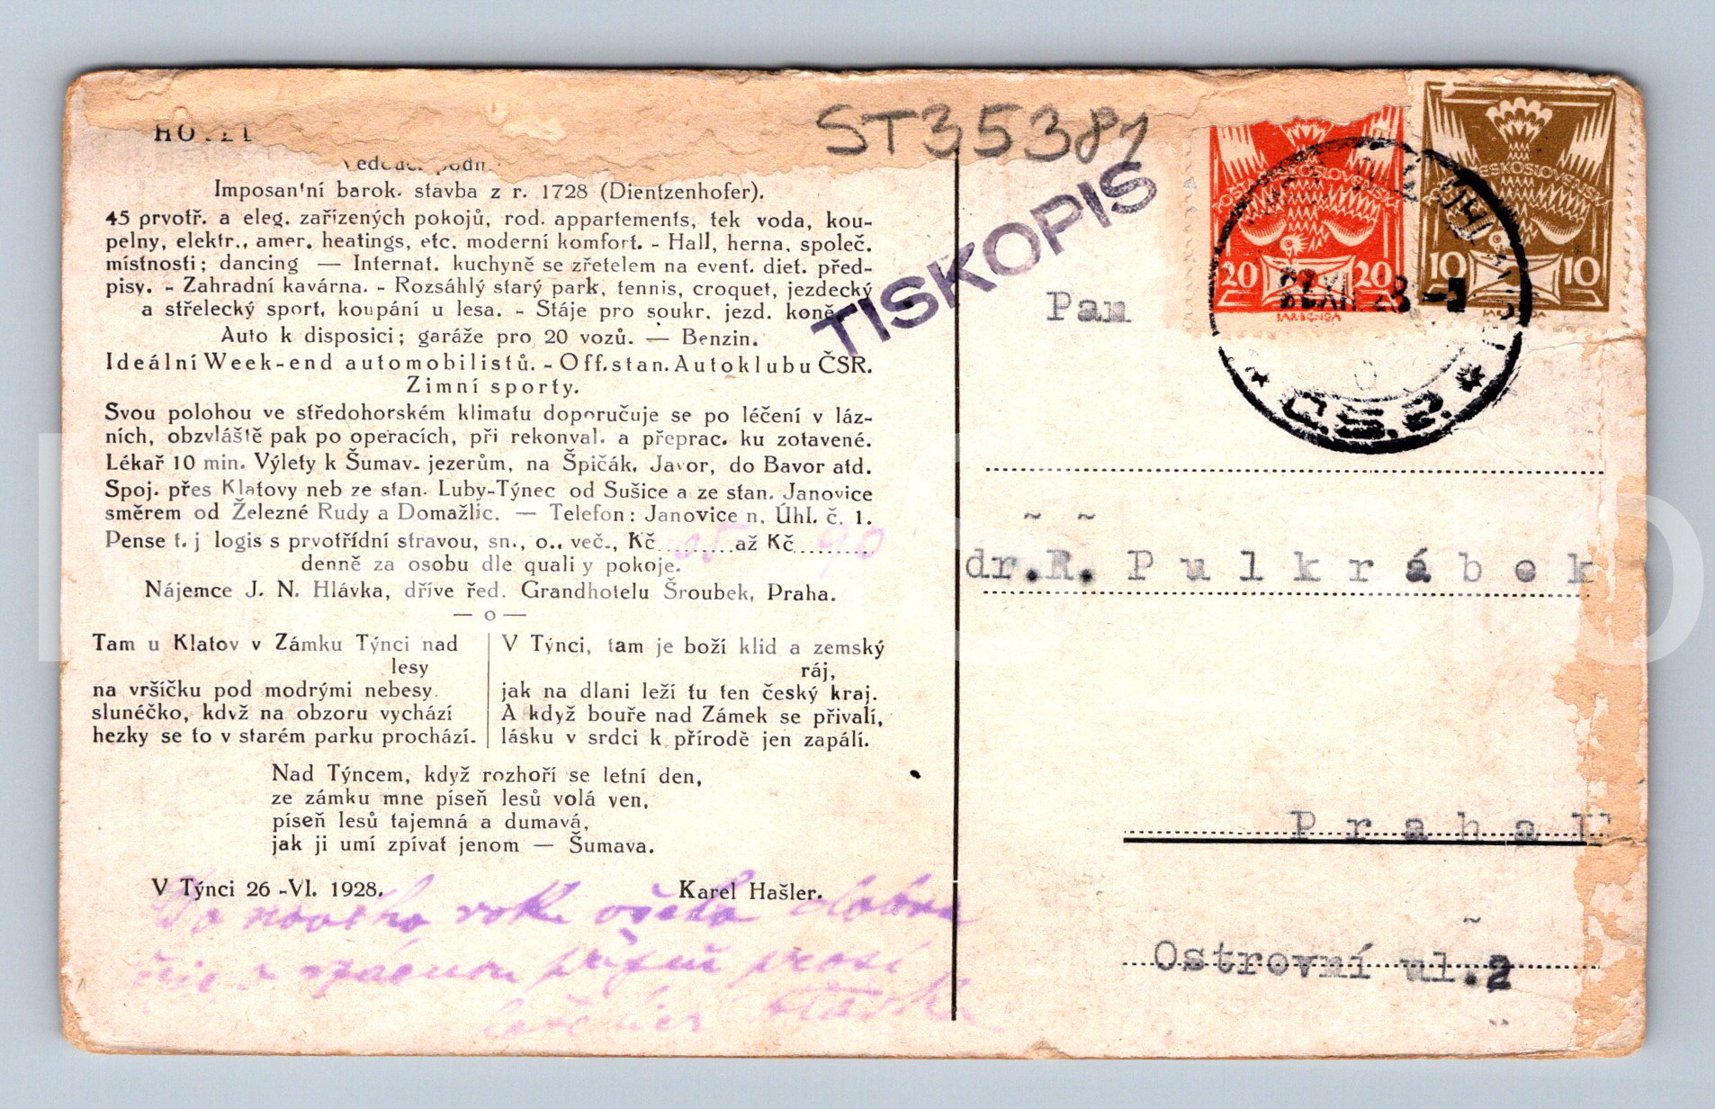 ST35381
HOTEL
Imposantní barok. stavba z r. 1728 (Dientzenhofer).
45 prvotř. a eleg. zařízených pokojů, rod. appartements, tek voda, kou-
pelny, elektr., amer. heatings, etc. moderní komfort. - Hall, herna, společ.
místnosti; dancing — Internat. kuchyně se zřetelem na event. diet. před-
pisy. - Zahradní kavárna. - Rozsáhlý starý park, tennis, croquet, jezdecký
a střelecký sport, koupání u lesa. - Stáje pro soukr. jezd. koně.
Auto k disposici; garáže pro 20 vozů. — Benzin.
Ideální Week-end automobilistů. - Off. stan. Autoklubu ČSR.
Zimní sporty.
Svou polohou ve středohorském klimatu doporučuje se po léčení v láz-
ních, obzvláště pak po operacích, při rekonval. a přeprac. ku zotavené.
Lékař 10 min. Výlety k Šumav. jezerům, na Špičák, Javor, do Bavor atd.
Spoj. přes Klatovy neb ze stan. Luby-Týnec od Sušice a ze stan. Janovice
směrem od Železné Rudy a Domažlic. — Telefon: Janovice n. Úhl. č. 1.
Pense t. j logis s prvotřídní stravou, sn., o., več., Kč 65 až Kč 90
denně za osobu dle quali y pokoje.
Nájemce J. N. Hlávka, dříve řed. Grandhotelu Šroubek, Praha.
— o —
Tam u Klatov v Zámku Týnci nad
lesy
na vršíčku pod modrými nebesy
slunéčko, když na obzoru vychází
hezky se to v starém parku prochází.
V Týnci, tam je boží klid a zemský
ráj,
jak na dlani leží tu ten český kraj.
A když bouře nad Zámek se přivalí,
lásku v srdci k přírodě jen zapálí.
Nad Týncem, když rozhoří se letní den,
ze zámku mne píseň lesů volá ven,
píseň lesů tajemná a dumavá,
jak ji umí zpívat jenom — Šumava.
V Týnci 26 -VI. 1928. Karel Hašler.
Do nového roku
prosí
Hlávka
TISKOPIS
ČESKOSLOVENSKÁ
20 20
ČESKOSLOVENSKÁ
10 10
XII 28
Č.S.R.
Pan
dr.R. Pulkrábek
Praha II
Ostrovní ul.2